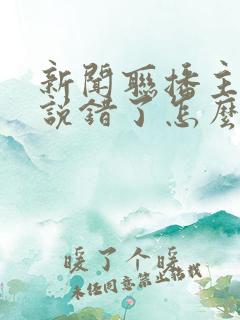 新聞聯播主
說錯了怎麼
暖了个暖
未径同意禁止转我